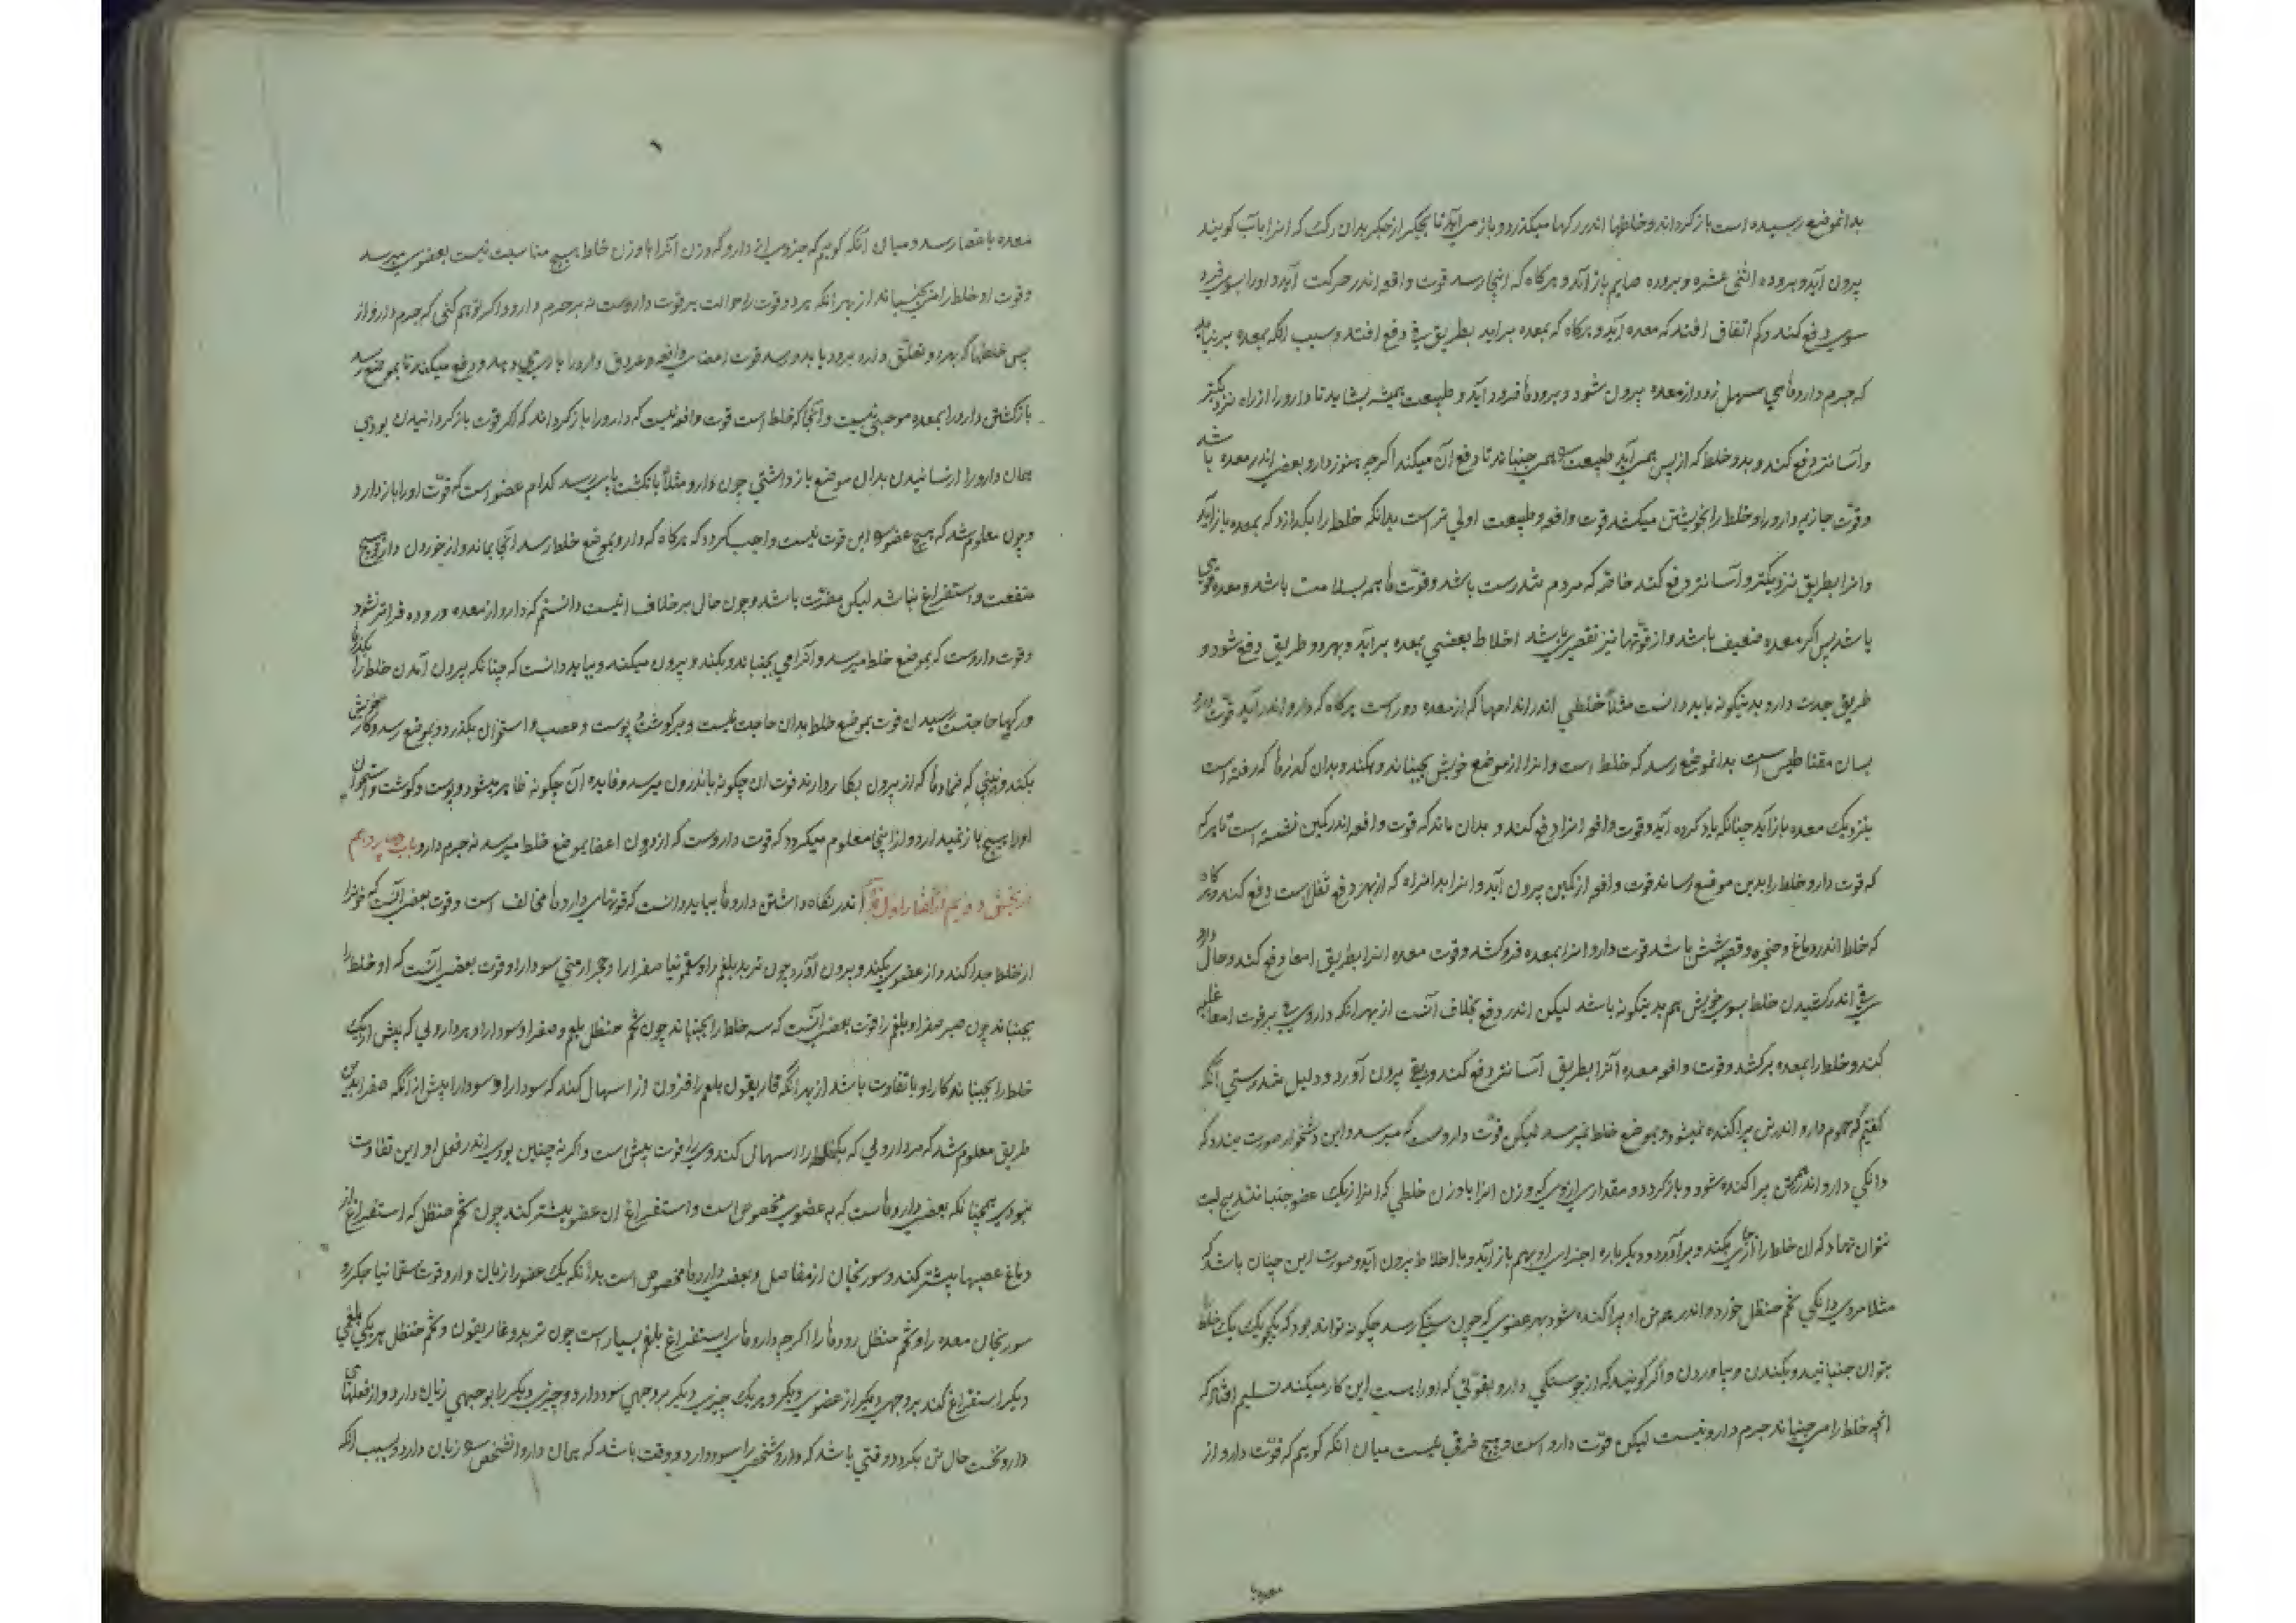 بدانموضع رسیده است باز کرداند و خلطها اندر رکها میکذرد و باز می‌آید تا بجکر از جکر بدان رک که انرا باب کویند
بیرون آید و بروده اثنی عشره و بروده صایم باز آید و هرکاه که اینجا رسد قوت دافعه اندر حرکت آید و اورا بسوی فرود
سوی دفع کند و کم اتفاق افتد که معده آید و هرکاه که بمعده براید بطریق قی دفع افتد و سبب انکه بمعده برنیاید
که جرم داروهای مسهل زود از معده بیرون شود و برودها فرود آید و طبیعت همیشه بشاید تا دارو را از راه نزدیکتر
و آسانتر دفع کند و بدو خلط که از پس همی آید طبیعت همی جنباند تا دفع آن میکند اکرچه هنوز دارو بعضی اندر معده باشد
و قوت جاذبه دارو را و خلط را بخویشتن میکشد قوت دافعه و طبیعت اولی تر است بدانکه خلط را بکذارد که بمعده باز آید
و انرا بطریق نزدیکتر و آسانتر دفع کند خاصه که مردم تندرست باشد و قوت‌ها همه بسلامت باشد و معده قوی
باشد پس اکر معده ضعیف باشد و از قوتها نیز تقصیری باشد اخلاط بعضی بمعده برآید و بهر دو طریق دفع شود و
طریق جذب دارو بدینکونه باید دانست مثلا خلطی اندر اندامها که از معده دورست هرکاه که دارو اندر آید قوت دارو
بسان مقناطیس است بدانموضع رسد که خلط است و انرا از موضع خویش بجنباند و بکند و بدان کذرها که رفته است
بنزدیک معده باز آید چنانکه یاد کرده آید و قوت دافعه انرا دفع کند و بدان ماند که قوت دافعه اندر کمین نشسته است تا هرکه
که قوت دارو خلط را بدین موضع رساند قوت دافعه از کمین بیرون آید و انرا بدانراه که از بهر دفع ثفل است دفع کند و هرکاه
که خلط اندر دماغ و حنجره و قصبه شش باشد قوت دارو انرا بمعده فروکشد و قوت معده انرا بطریق امعا دفع کند و حال داروی
قی اندر کشیدن خلط بسوی خویش هم بدینکونه باشد لیکن اندر دفع بخلاف آنست از بهر انکه داروی قی بر قوت امعا غلبه
کند و خلط را بمعده برکشد و قوت دافعه معده آنرا بطریق آسانتر دفع کند و بقی بیرون آورد و دلیل بدرستی آنکه
کفتیم که جرم دارو اندر تن پراکنده نمیشود و بموضع خلط نمیرسد لیکن قوت داروست که میرسد و این دشخوار صورت بندد که
دانکی دارو اندر همه تن پراکنده شود و باز کردد و مقداری از وی که وزن انرا با وزن خلطی که انرا از یک عضو جنباند هیچ نسبت
نتوان نهاد که ان خلط را از جای بکند و برآورد و دیکرباره اجزای او بهم باز آید و با اخلاط بیرون آید و صورت این چنان باشد که
مثلا مردی دانکی شحم حنظل خورد و اندر همه تن او پراکنده شود بهر عضوی که چون سنکی رسد چکونه تواند بود که بیک یک خلط را
بتوان جنبانید و بکندن و بیاوردن و اکر کویند که از جوستکی دارو بقوتی که اوراست این کار میکند تسلیم افتد که
آنچه خلط را می‌جنباند جرم دارو نیست لیکن قوت دارو است و هیچ فرقی نیست میان انکه کویم که قوت دارو از
معده با
معده باعضا رسد و میان آنکه کویم که جزوی از دارو که وزن آنرا با وزن خلط هیچ مناسبت نیست بعضوی میرسد
و قوت او خلط را می‌جنباند از بهر انکه هر دو قوت را حوالت بر قوت داروست نه بر جرم دارو و اکر توهم کنی که جرم دارو از
پس خلطها که بدو تعلق دارد برود باید و رسد قوت اعضای دافعه و عروق دارو را یاری دهد و دفع میکند تا بموضع رسد
باز کشتن دارو را بمعده موجبی نیست و انجا که خلط است قوت دافعه نیست که دارو را باز کرداند که اکر قوت باز کردانیدن بودی
همان دارو را از رسانیدن بدان موضع باز داشتی چون دارو مثلا بانکشت پای رسد کدام عضو است که قوت او را باز دارد
و چون معلوم شد که هیچ عضو را این قوت نیست واجب کردد که هرکاه که دارو بموضع خلط رسد انجا بماند و از خوردن دارو هیچ
منفعت و استفراغ نباشد لیکن مضرت باشد و چون حال بر خلاف اینست دانستیم که دارو از معده و روده فراتر نشود
و قوت داروست که بموضع خلط میرسد و آنرا می بجنباند و بکند و بیرون میکند و بباید دانست که چنانکه بیرون آمدن خلط را بکذر
و رکها حاجتست رسیدن قوت بموضع خلط بدان حاجت نیست و بر کوشت و پوست و عصب و استخوان بکذرد و بموضع رسد و کار خویش
بکند و نبینی که ضمادها که از بیرون بکار دارند قوت ان چکونه باندرون میرسد و فایده آن چکونه ظاهر میشود و پوست و کوشت و استخوان
اورا هیچ باز نمیدارد و از اینجا معلوم میکردد که قوت داروست که از درون اعضا بموضع خلط میرسد نه جرم دارو باب چهاردهم
از بخش دویم از کفتار اول اندر نکاه داشتن داروها بباید دانست که قوتهای داروها مخالف است و قوت بعضی آنست که خون را
از خلط جدا کند و از عضوی بکند و بیرون آورد چون تربد بلغم را و سقمونیا صفرا را و حجر ارمنی سودا را و قوت بعضی آنست که دو خلط را
بجنباند چون صبر صفرا و بلغم را و قوت بعضی آنست که سه خلط را بجنباند چون شحم حنظل بلغم و صفرا و سودا را و هر دارویی که بیش از یک
خلط را بجنباند کار او با تفاوت باشد از بهر آنکه غاریقون بلغم را فزون از ان اسهال کند که سودا را و سودا را بیش از آنکه صفرا بدین
طریق معلوم شد که هر دارویی که یک خلط را اسهال کند وی را قوت بیش است و اکر نه چنین بودی اندر فعل او این تفاوت
نبودی همچنانکه بعضی داروهاست که به عضوی مخصوص است و استفراغ ان عضو بیشتر کند چون شحم حنظل که استفراغ از
دماغ و عصبها بیشتر کند و سورنجان از مفاصل و بعضی داروها مخصوص است بدانکه یک عضو را زیان دارد و قوت سقمونیا جکر را و
سورنجان معده را و شحم حنظل روده‌ها را اکرچه داروهای استفراغ بلغم بسیار است چون تربد و غاریقون و شحم حنظل هر یکی بلغمی
دیکر استفراغ کند بر وجهی دیکر از عضوی دیکر و هر یک چیزی دیکر بر وجهی سود دارد و چیزی دیکر را بوجهی زیان دارد و از فعلهای
دارو نخست حال تن بکردد وقتی باشد که دارو شخصی را سود دارد و وقت باشد که همان دارو انشخص را زیان دارد و سبب انکه